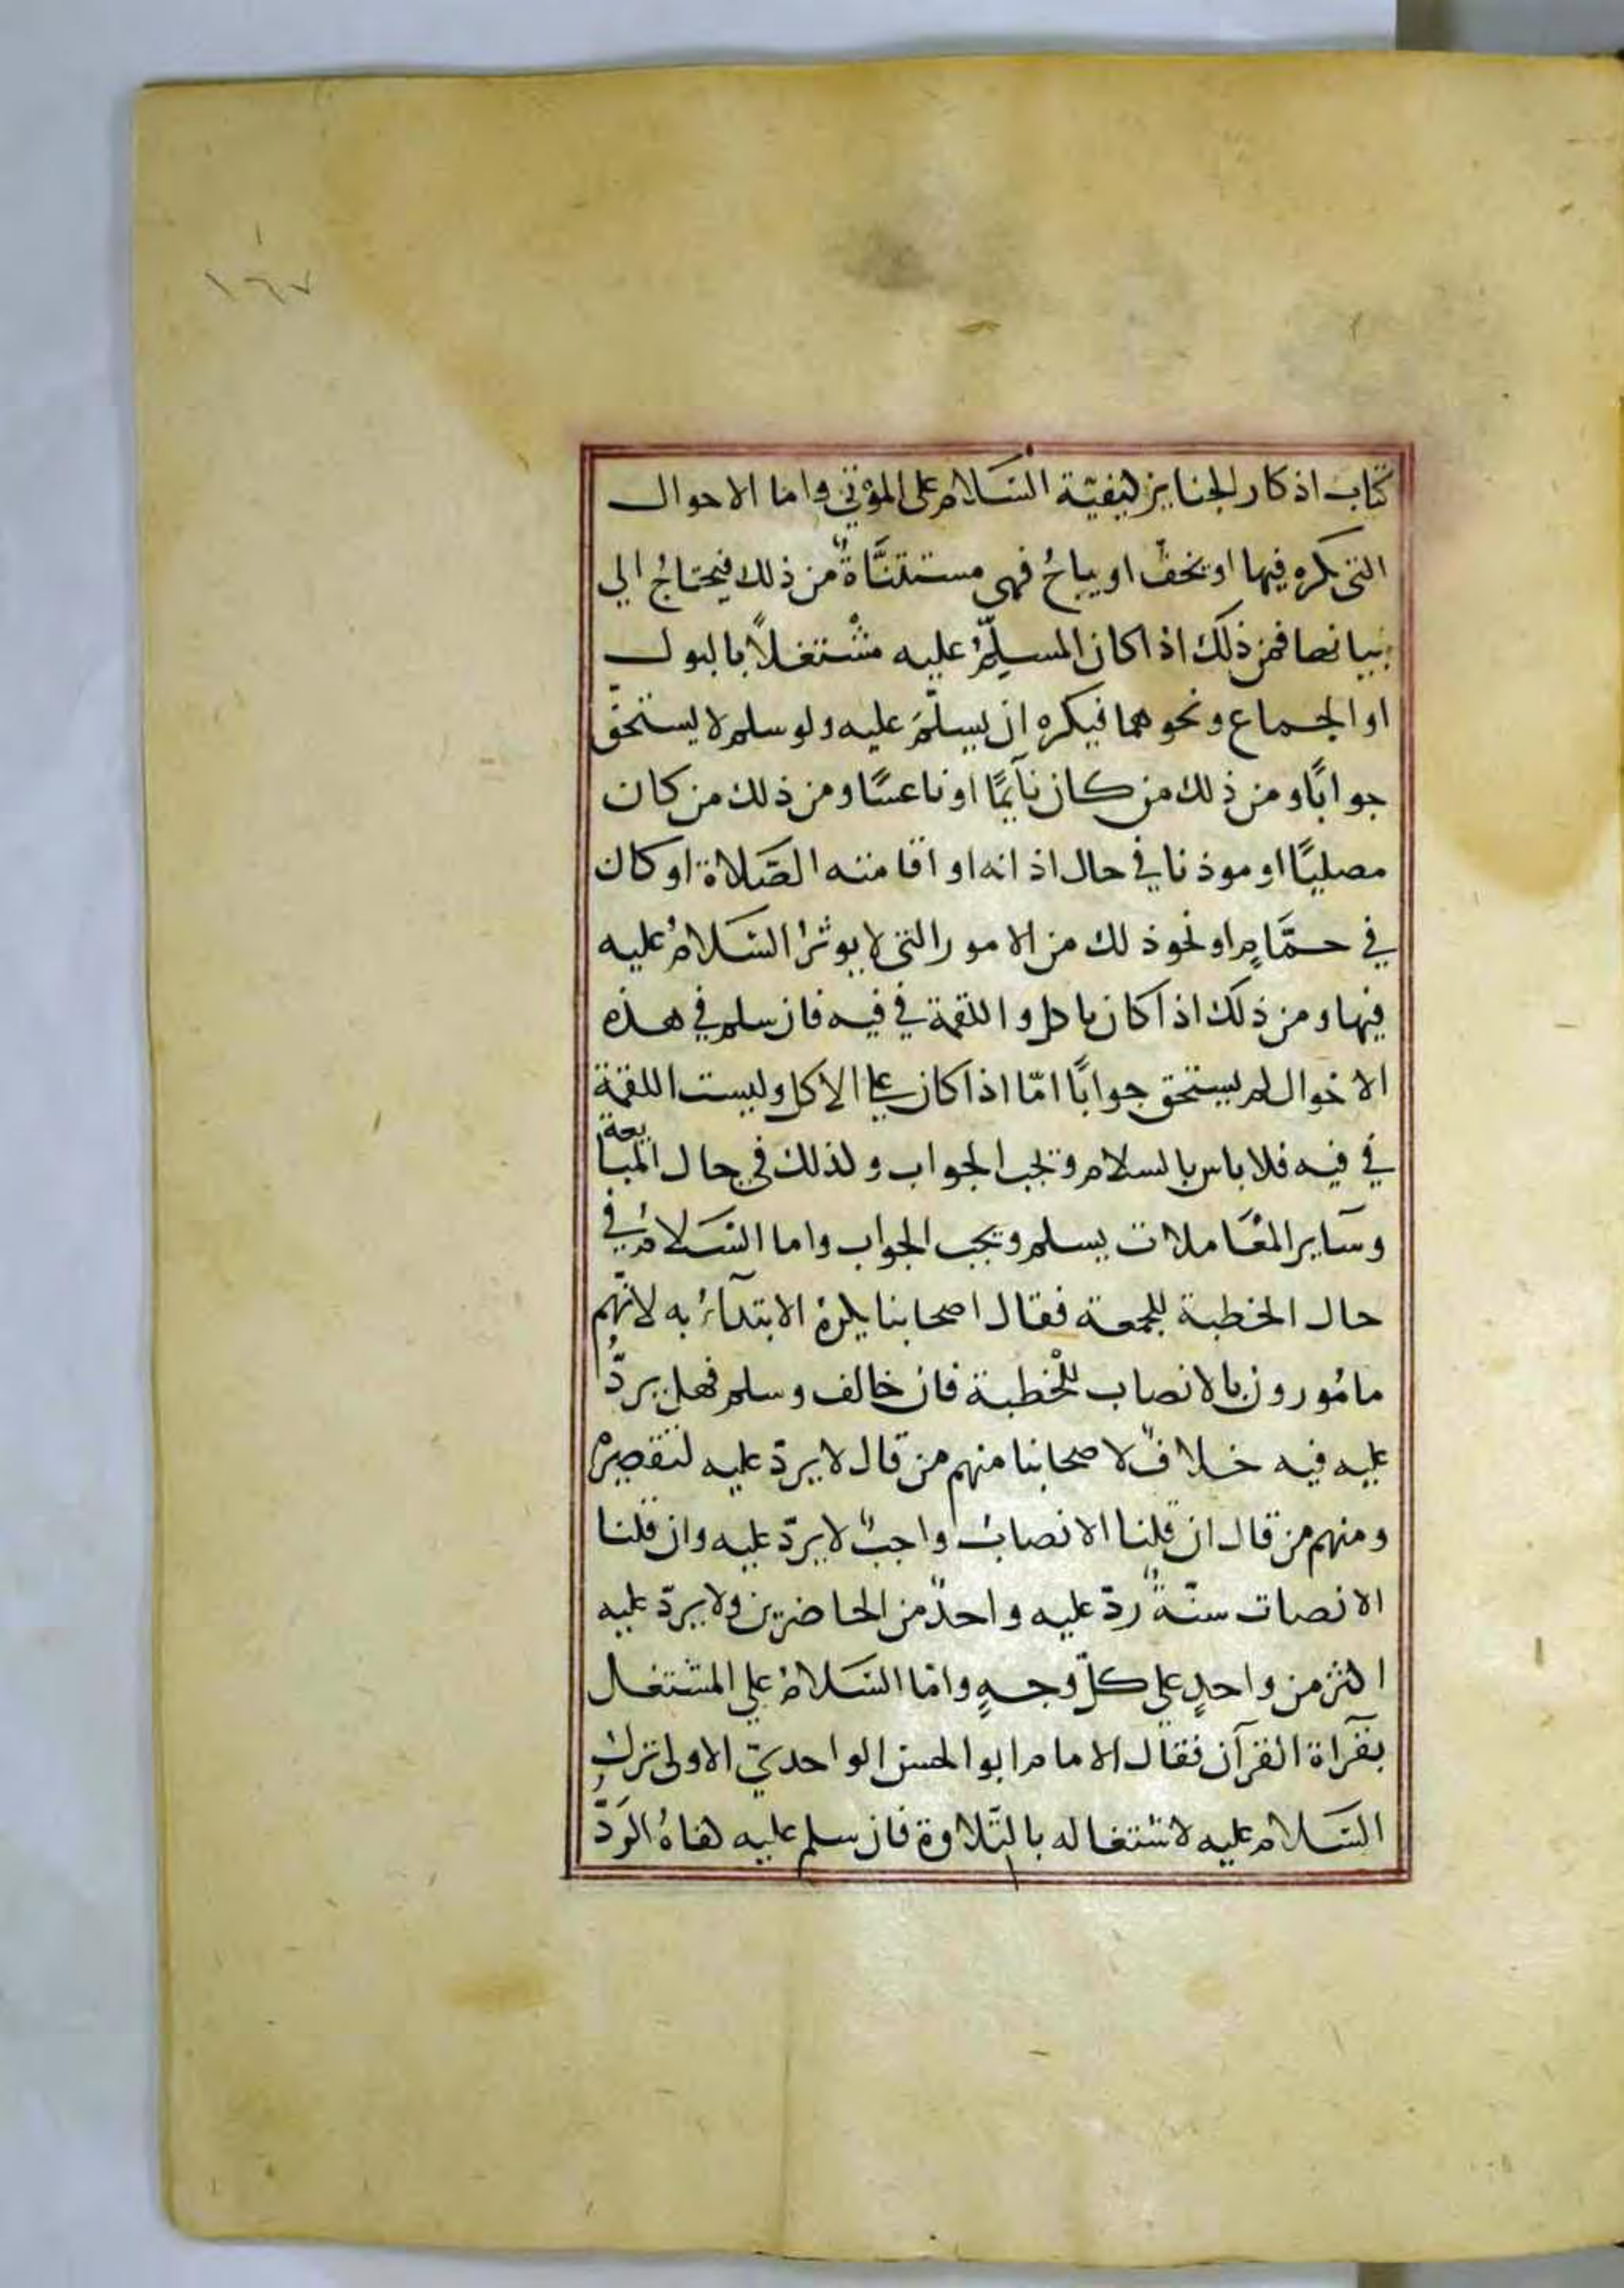 ١٦٧
كتاب اذكار الجنايز كيفيّة السّلام على الموتى واما الاحوال
التى يكره فيها او يخفّ او يباحُ فهى مستثنَّاةٌ من ذلك فيحتاجُ الي
بيانها فمن ذلك اذا كان المسلَّمُ عليه مشْتغلاً بالبول
او الجماع ونحوهما فيكره ان يسلّمَ عليه ولو سلم لا يستحقّ
جوابًا ومن ذلك من كان نآيمًا او ناعسًا ومن ذلك من كان
مصليًا او موذنا في حال اذانه او اقامته الصّلاة او كان
في حمَّامٍ او نحو ذلك من الامور التى لا يوثرُ السّلامُ عليه
فيها ومن ذلك اذا كان ياكل واللقمة في فيه فان سلم في هذه
الاحوال لم يستحق جوابًا امّا اذا كان على الاكل وليست اللقمة
في فيه فلا باس بالسلام ويجب الجواب وكذلك فى حال المبايعة
وسَاير المعَاملات يسلم ويجب الجواب واما السّلامُ في
حال الخطبة للجمعة فقال اصحابنا يكرهُ الابتدآءُ به لانّهم
مامُورون بالانصاب للْخطبة فان خالف وسلم فهل يردُّ
عليه فيه خلافٌ لاصحابنا منهم من قال لا يردّ عليه لتقصيرهِ
ومنهم من قال ان قلنا الانصاتُ واجبٌ لا يردّ عليه وان قلنا
الانصات سنّةٌ ردّ عليه واحدٌ من الحاضرين ولا يردّ عليه
اكثر من واحدٍ على كلّ وجهٍ وامّا السّلامُ علي المشتغل
بقرآة القرآن فقال الامام ابو الحسن الواحديّ الاولى تركُ
السّلام عليه لاشتغاله بالتّلاوة فان سلم عليه كفاهُ الرَدُّ